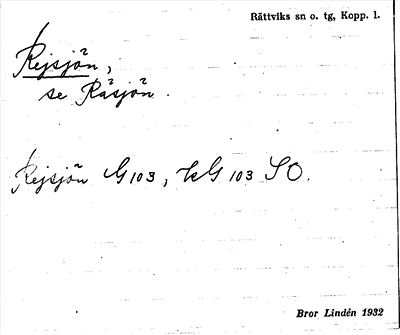 Rättviks sn o. tg, Kopp. l.
Rejsjön,
se Råsjön.
Rejsjön G 103, kG 103 SO.
Bror Lindén 1932